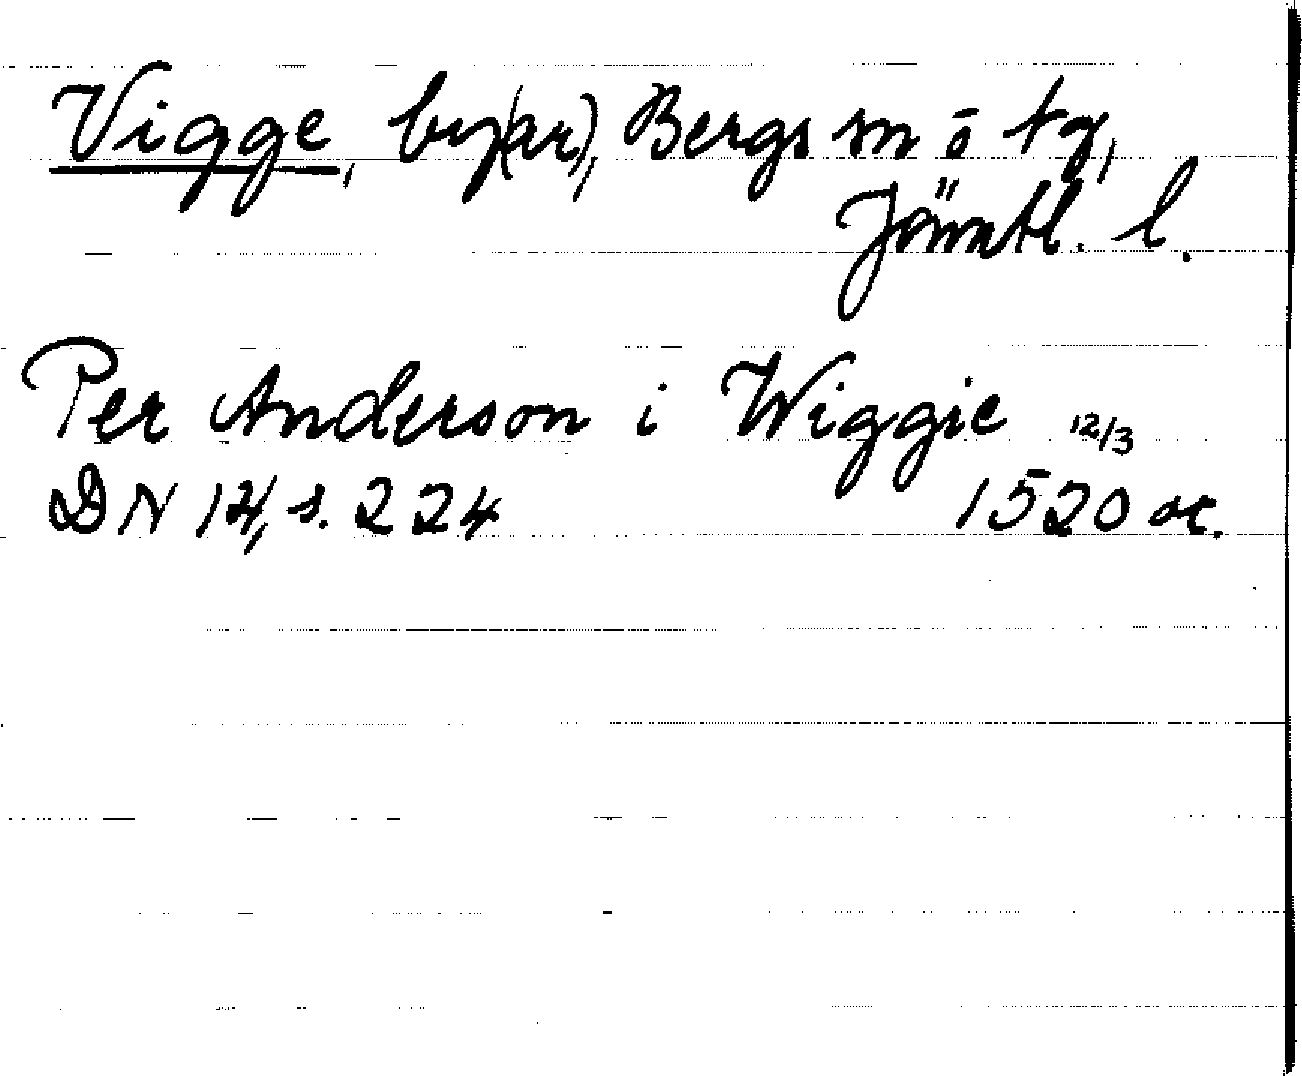 Vigge, by(ar), Bergs sn o tg,
Jämtl. l.
Per Anderson i Wiggie 12/3
DN 14, s. 224 1520 or.